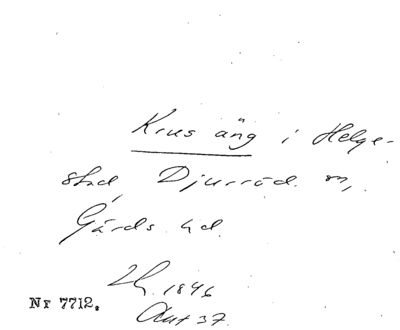 Krus äng i Helge-
stad, Djurröd sn,
Gärds hd.
LK 1846
Akt 37
Nr 7712.